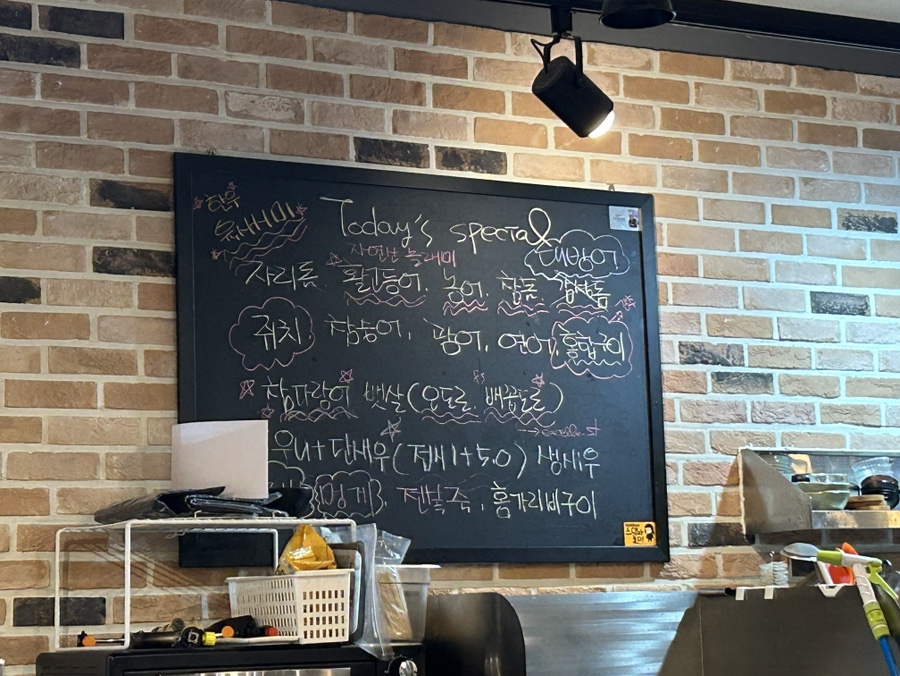 Today's special
대방어
자연산 놀래미
자리돔 활고등어, 농어, 참돔, 감성돔
쥐치 참농어, 광어, 연어, 홍합구이
참다랑어 뱃살(오도로, 배꼽도로)
우니+단새우(접시1+5.0) 생새우
멍게, 전복죽, 홍가리비구이